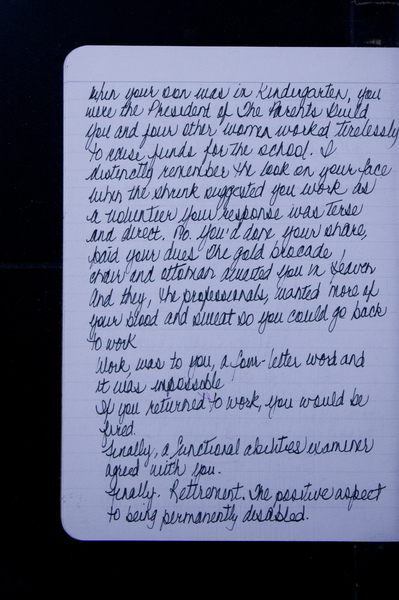 When your son was in Kindergarten, you
were the President of The Parents Guild,
You and four other women worked tirelessly
to raise funds for the school. I
distinctly remember the look on your face
when the shrink suggested you work as
a volunteer. Your response was terse
and direct. No. you'd done your share,
paid your dues. The gold brocade,
chair and ottoman awaited you in Heaven
And they, the professionals, wanted more of
your blood and sweat so you could go back
to work
Work, was to you, a four-letter word and
it was impossible
If you returned to work, you would be
fired.
Finally, a functional abilities examiner
agreed with you.
Finally. Retirement. The positive aspect
to being permanently disabled.